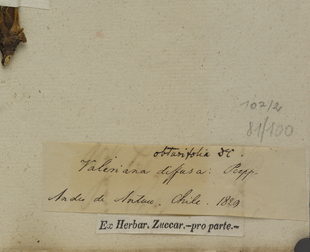 107/2
81/100
obtusifolia DC.
Valeriana diffusa: Poepp.
Andes de Antuco, Chile. 1829
Ex Herbar. Zuccar.—pro parte.—